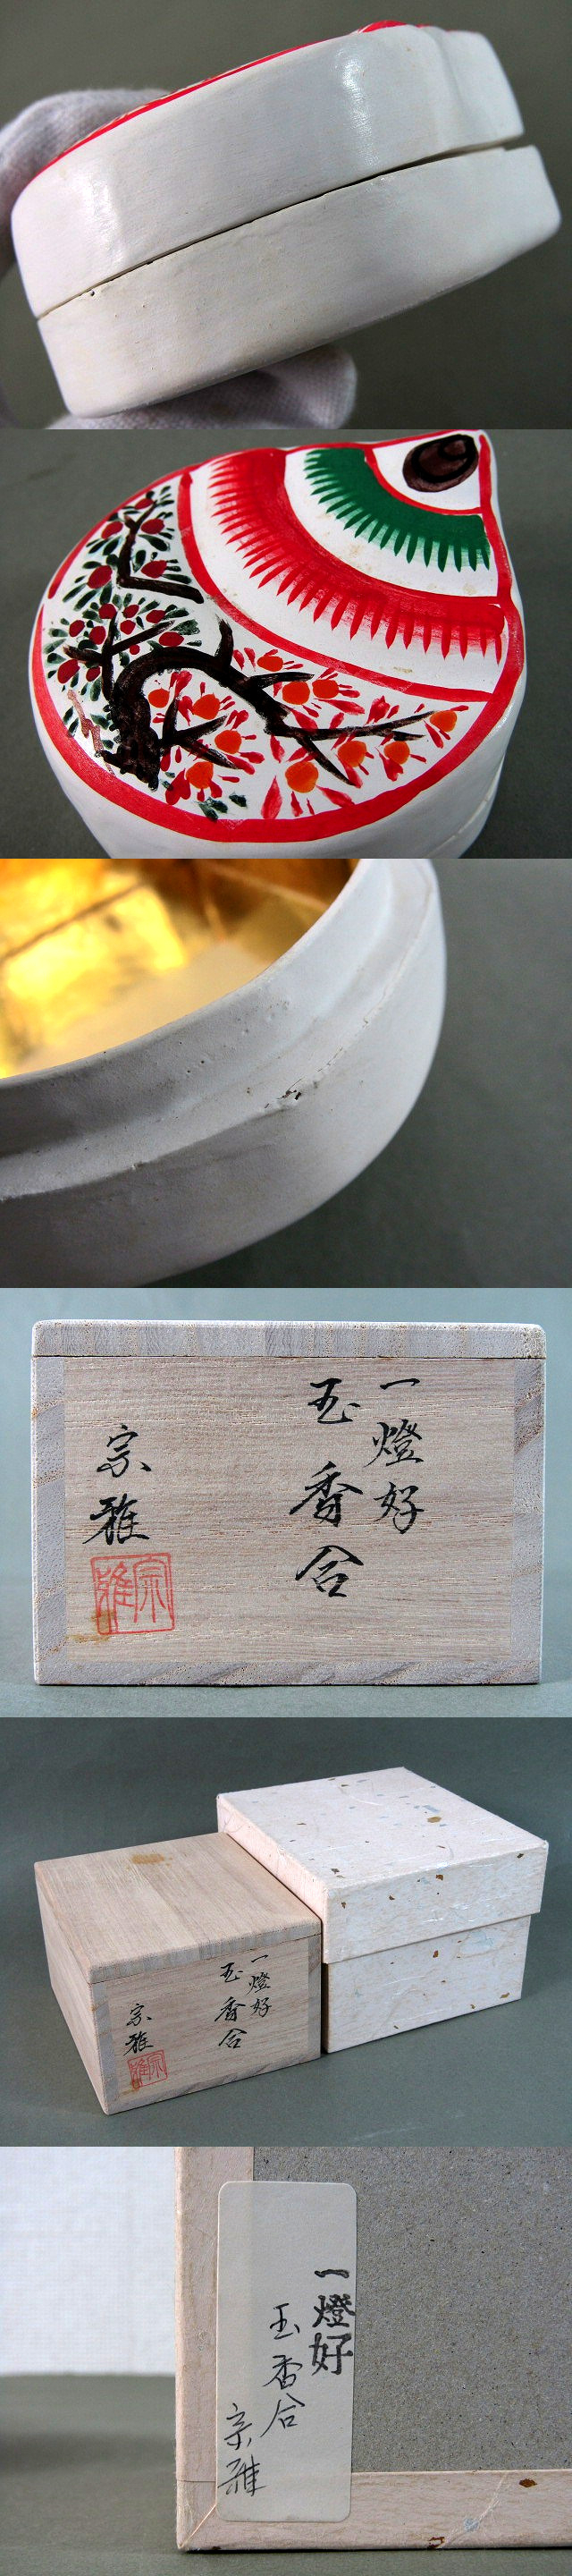 一燈好
玉香合
宗雅
宗雅
一燈好
玉香合
宗雅
宗雅
一燈好
玉香合
宗雅